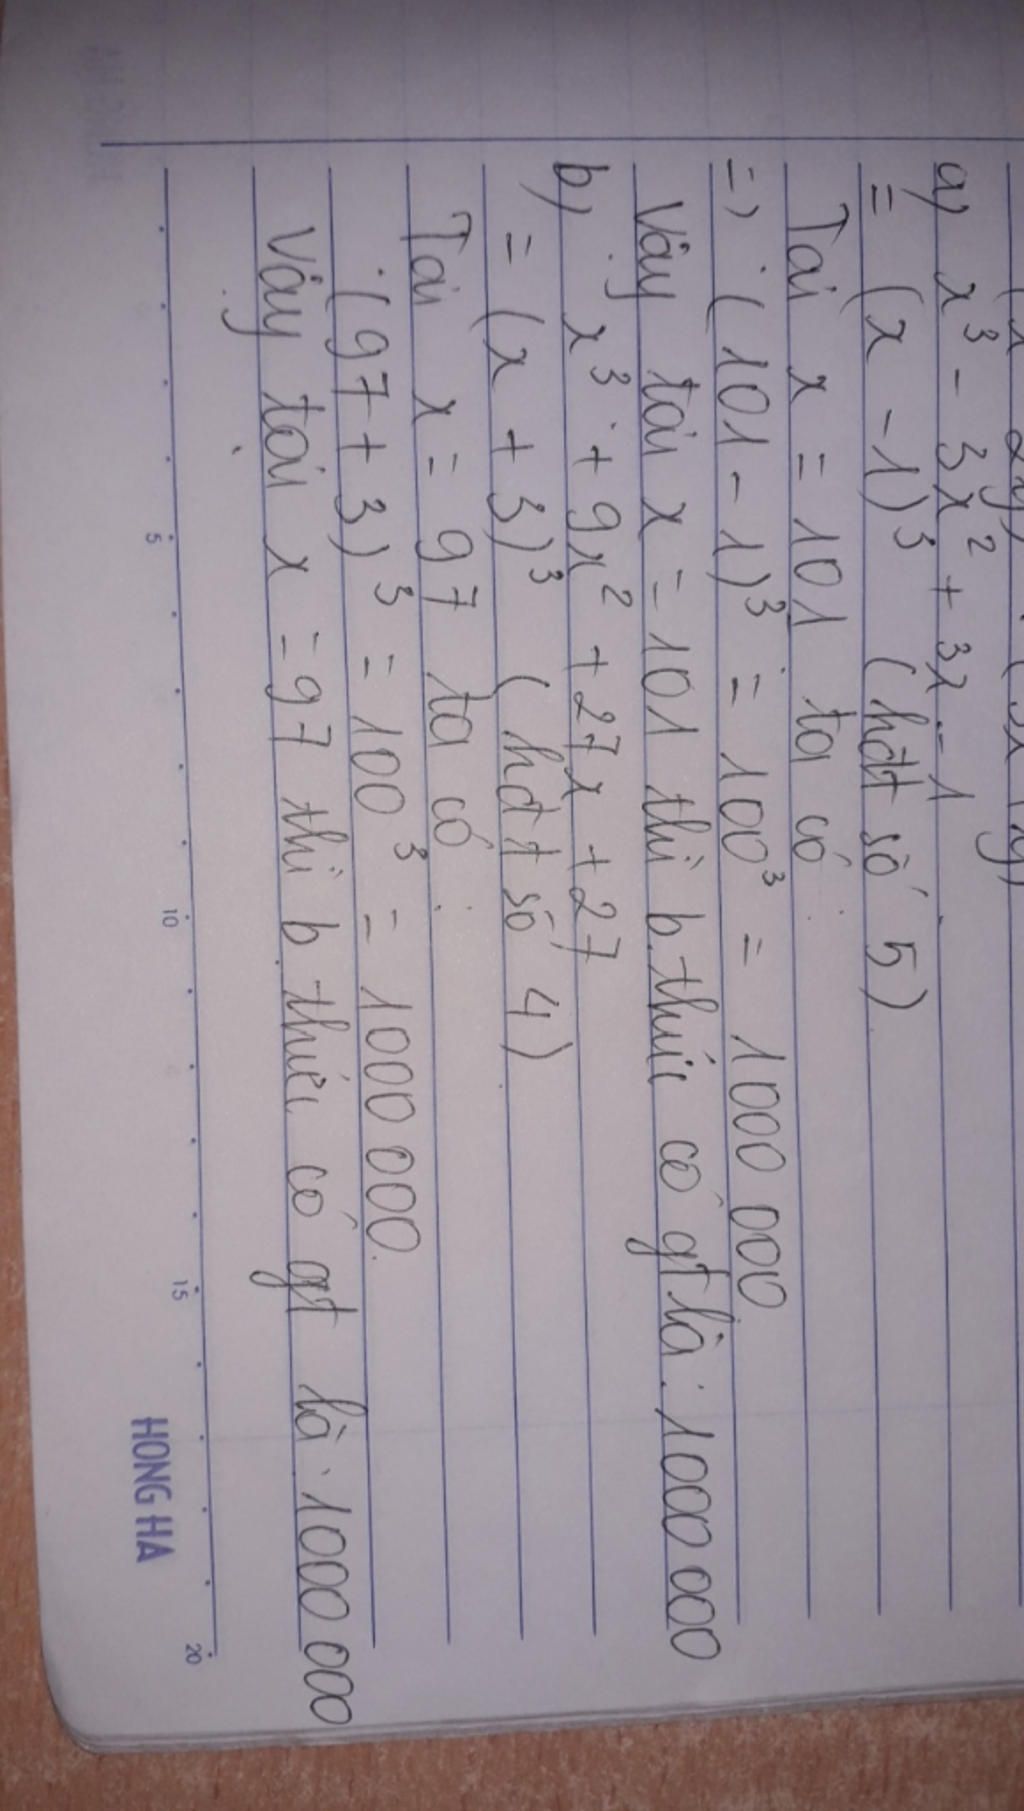 a) x³ - 3x² + 3x - 1
= (x - 1)³ (hđt số 5)
Tại x = 101 ta có:
=> (101 - 1)³ = 100³ = 1000 000
Vậy tại x = 101 thì b.thức có gt là: 1000 000
b) x³ + 9x² + 27x + 27
= (x + 3)³ (hđt số 4)
Tại x = 97 ta có:
(97 + 3)³ = 100³ = 1000 000.
Vậy tại x = 97 thì b thức có gt là: 1000 000
5 10 15 20
HONG HA